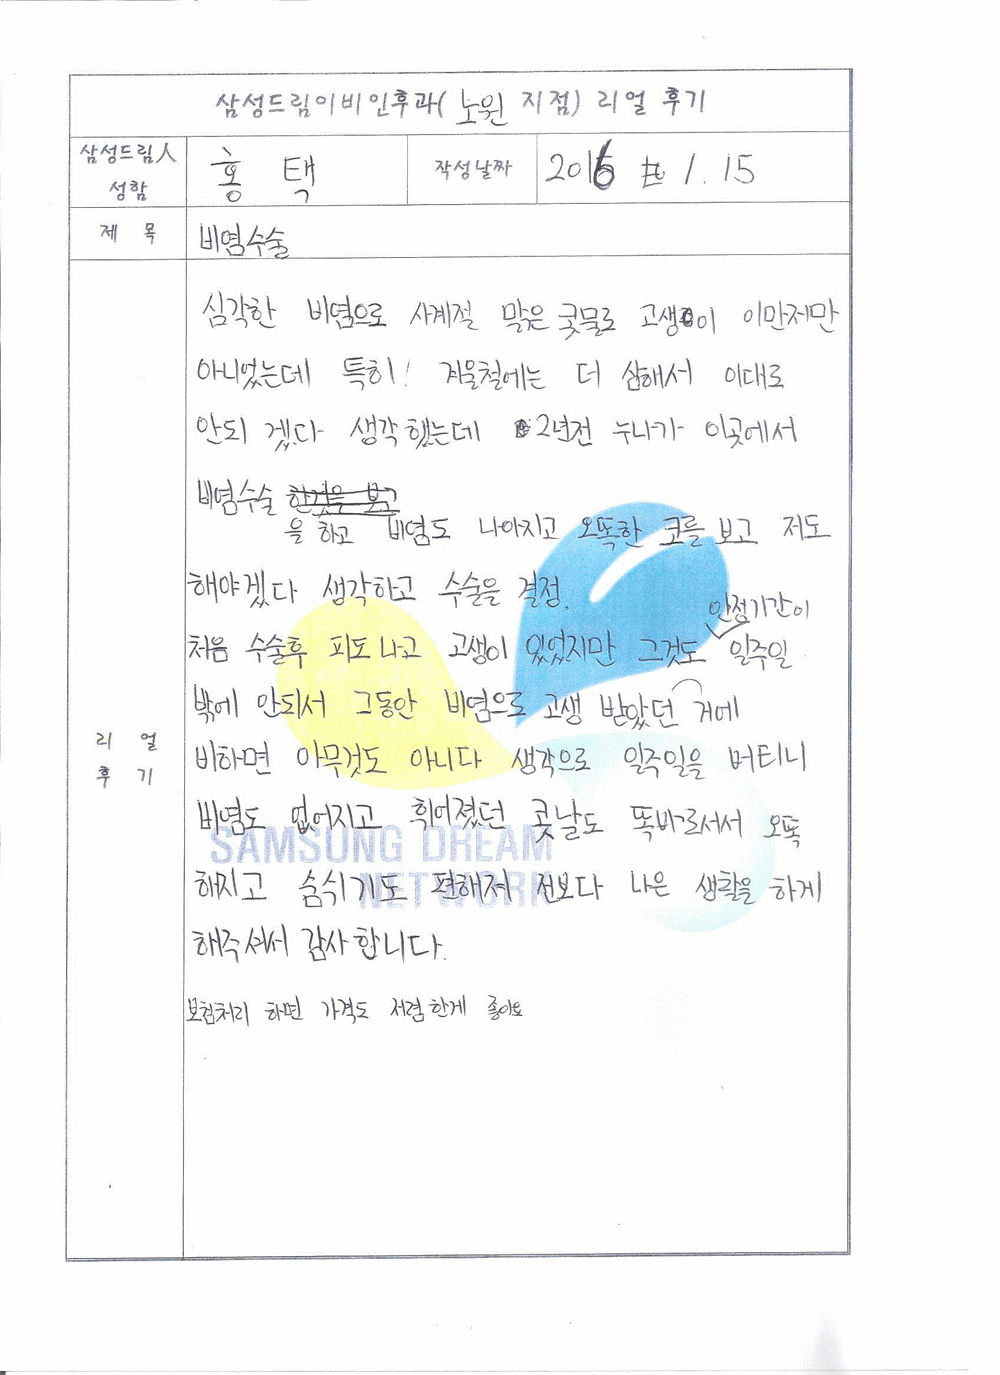 삼성드림이비인후과( 노원 지점) 리얼 후기
삼성드림人 성함
홍 택
작성날짜
2016 1.15
제 목
비염수술
리 얼
후 기
심각한 비염으로 사계절 맑은 콧물로 고생이 이만저만
아니었는데 특히! 겨울철에는 더 심해서 이대로
안되 겠다 생각했는데 2년전 누나가 이곳에서
비염수술 한것을 보고
을 하고 비염도 나아지고 오똑한 코를 보고 저도
해야겠다 생각하고 수술을 결정.
안정기간이
처음 수술후 피도 나고 고생이 있었지만 그것도 일주일
밖에 안되서 그동안 비염으로 고생 받았던 거에
비하면 아무것도 아니다 생각으로 일주일을 버티니
비염도 없어지고 휘어졌던 콧날도 똑바로서서 오똑
해지고 숨쉬기도 편해져 전보다 나은 생활을 하게
해주셔서 감사합니다.
보험처리 하면 가격도 저렴한게 좋아요
SAMSUNG DREAM
NETWORK